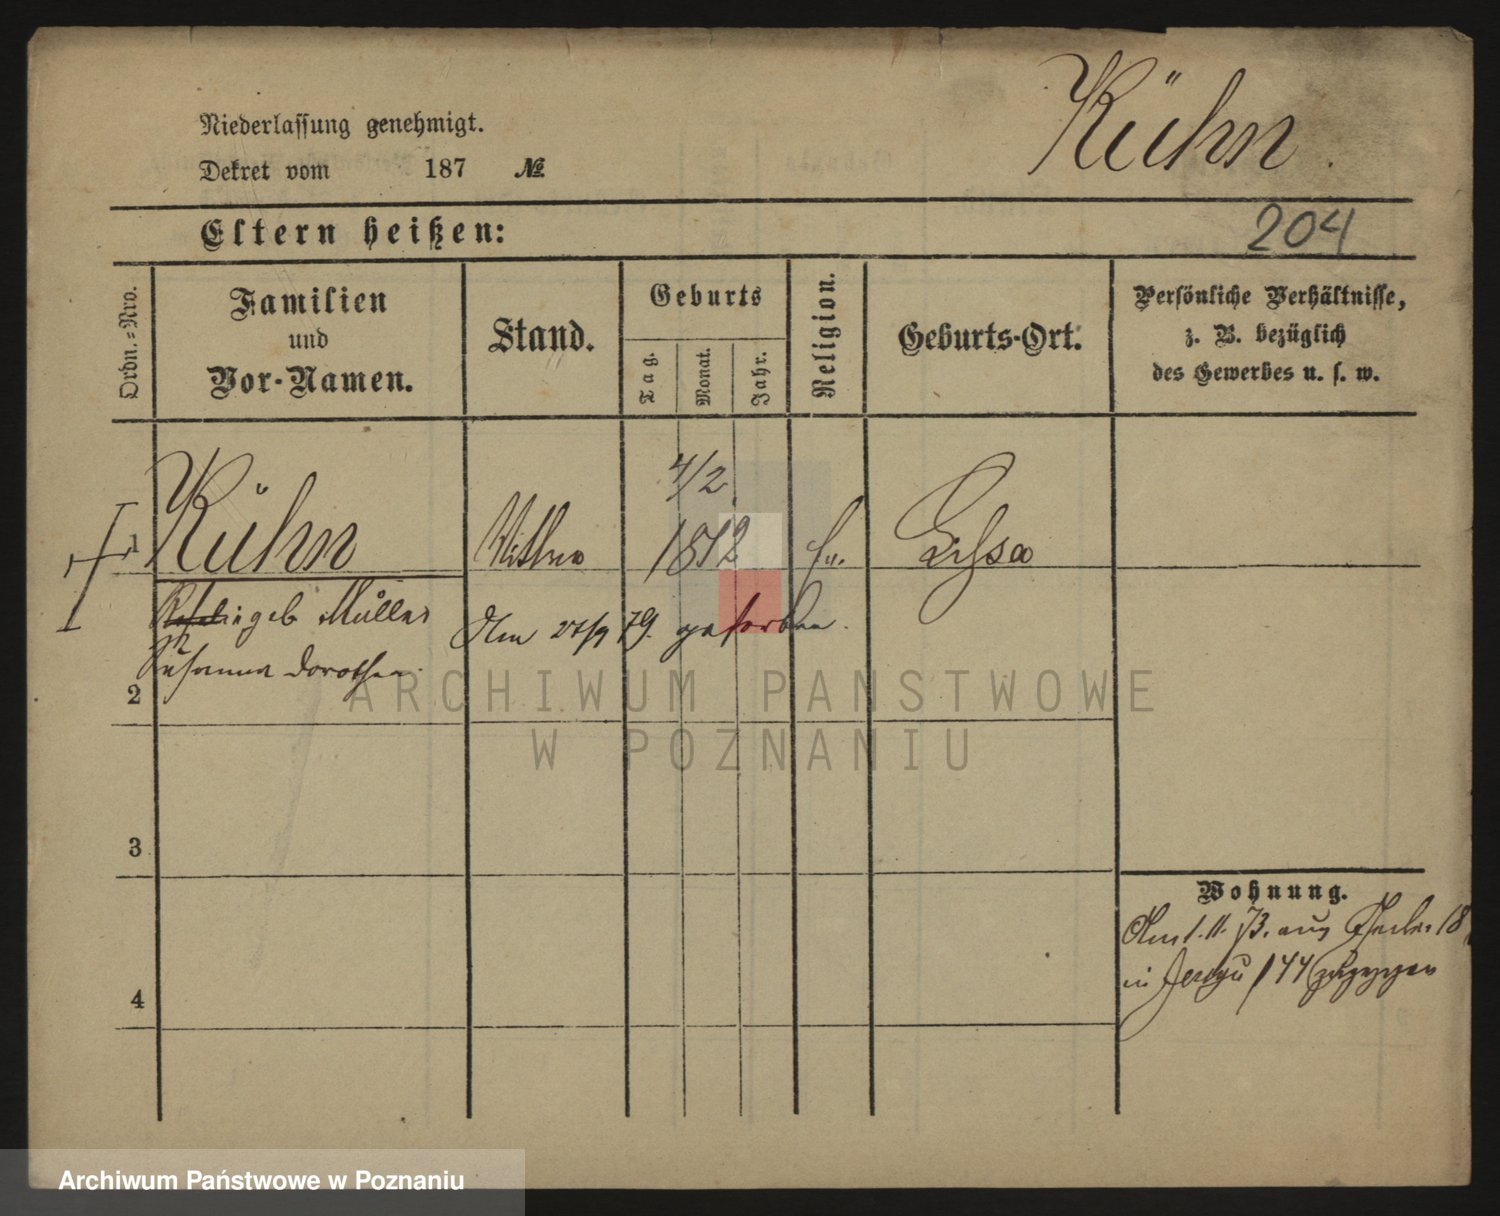 Kühn
Niederlassung genehmigt.
Dekret vom 187 №
204
Eltern heißen:
Ordn.=Nro.
Familien
und
Vor-Namen.
Stand.
Geburts
Tag.
Monat.
Jahr.
Religion.
Geburts-Ort.
Persönliche Verhältnisse,
z. B. bezüglich
des Gewerbes u. s. w.
1
Kühn
4/2
1812
ev.
Lissa
geb Müller
Susanna Dorothea
Am 27/9 79. gestorben.
2
3
4
Wohnung.
Am 1. 11. 73. aus 18
in Jersyce 144 gezogen
ARCHIWUM PAŃSTWOWE
W POZNANIU
Archiwum Państwowe w Poznaniu